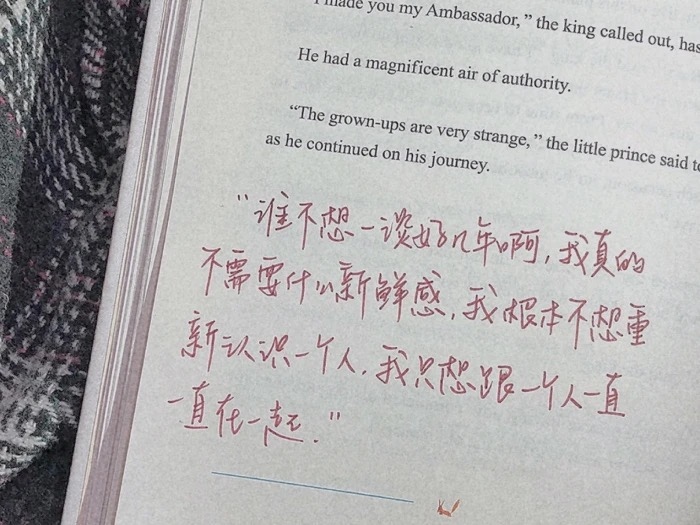 I made you my Ambassador,” the king called out, has
He had a magnificent air of authority.
“The grown-ups are very strange,” the little prince said to
as he continued on his journey.
“谁不想一谈好几年啊，我真的
不需要什么新鲜感，我根本不想重
新认识一个人，我只想跟一个人一直
一直在一起.”